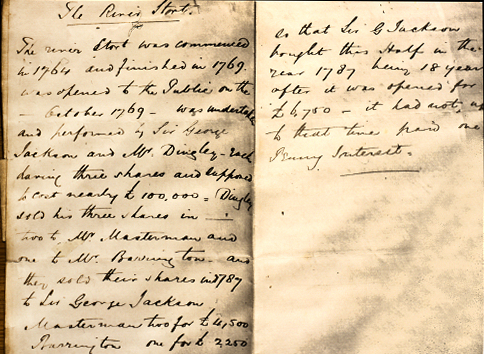 The River Stort.
The river Stort was commenced
in 1764 and finished in 1769
was opened to the Public on the
— October 1769 — was undertak
and performed by Sir George
Jackson and Mr. Dingley — Each
having three shares and supposed
to cost nearly £100,000 = Dingley
sold his three shares in —
two to Mr. Masterman and
one to Mr. Barrington — and
they sold their shares in 1787
to Sir George Jackson
Masterman two for £4,500
Barrington one for £ 2,250
so that Sir G Jackson
bought this Half in the
year 1787 being 18 years
after it was opened for
£6,750 — it had not, up
to that time paid one
Penny Interest.